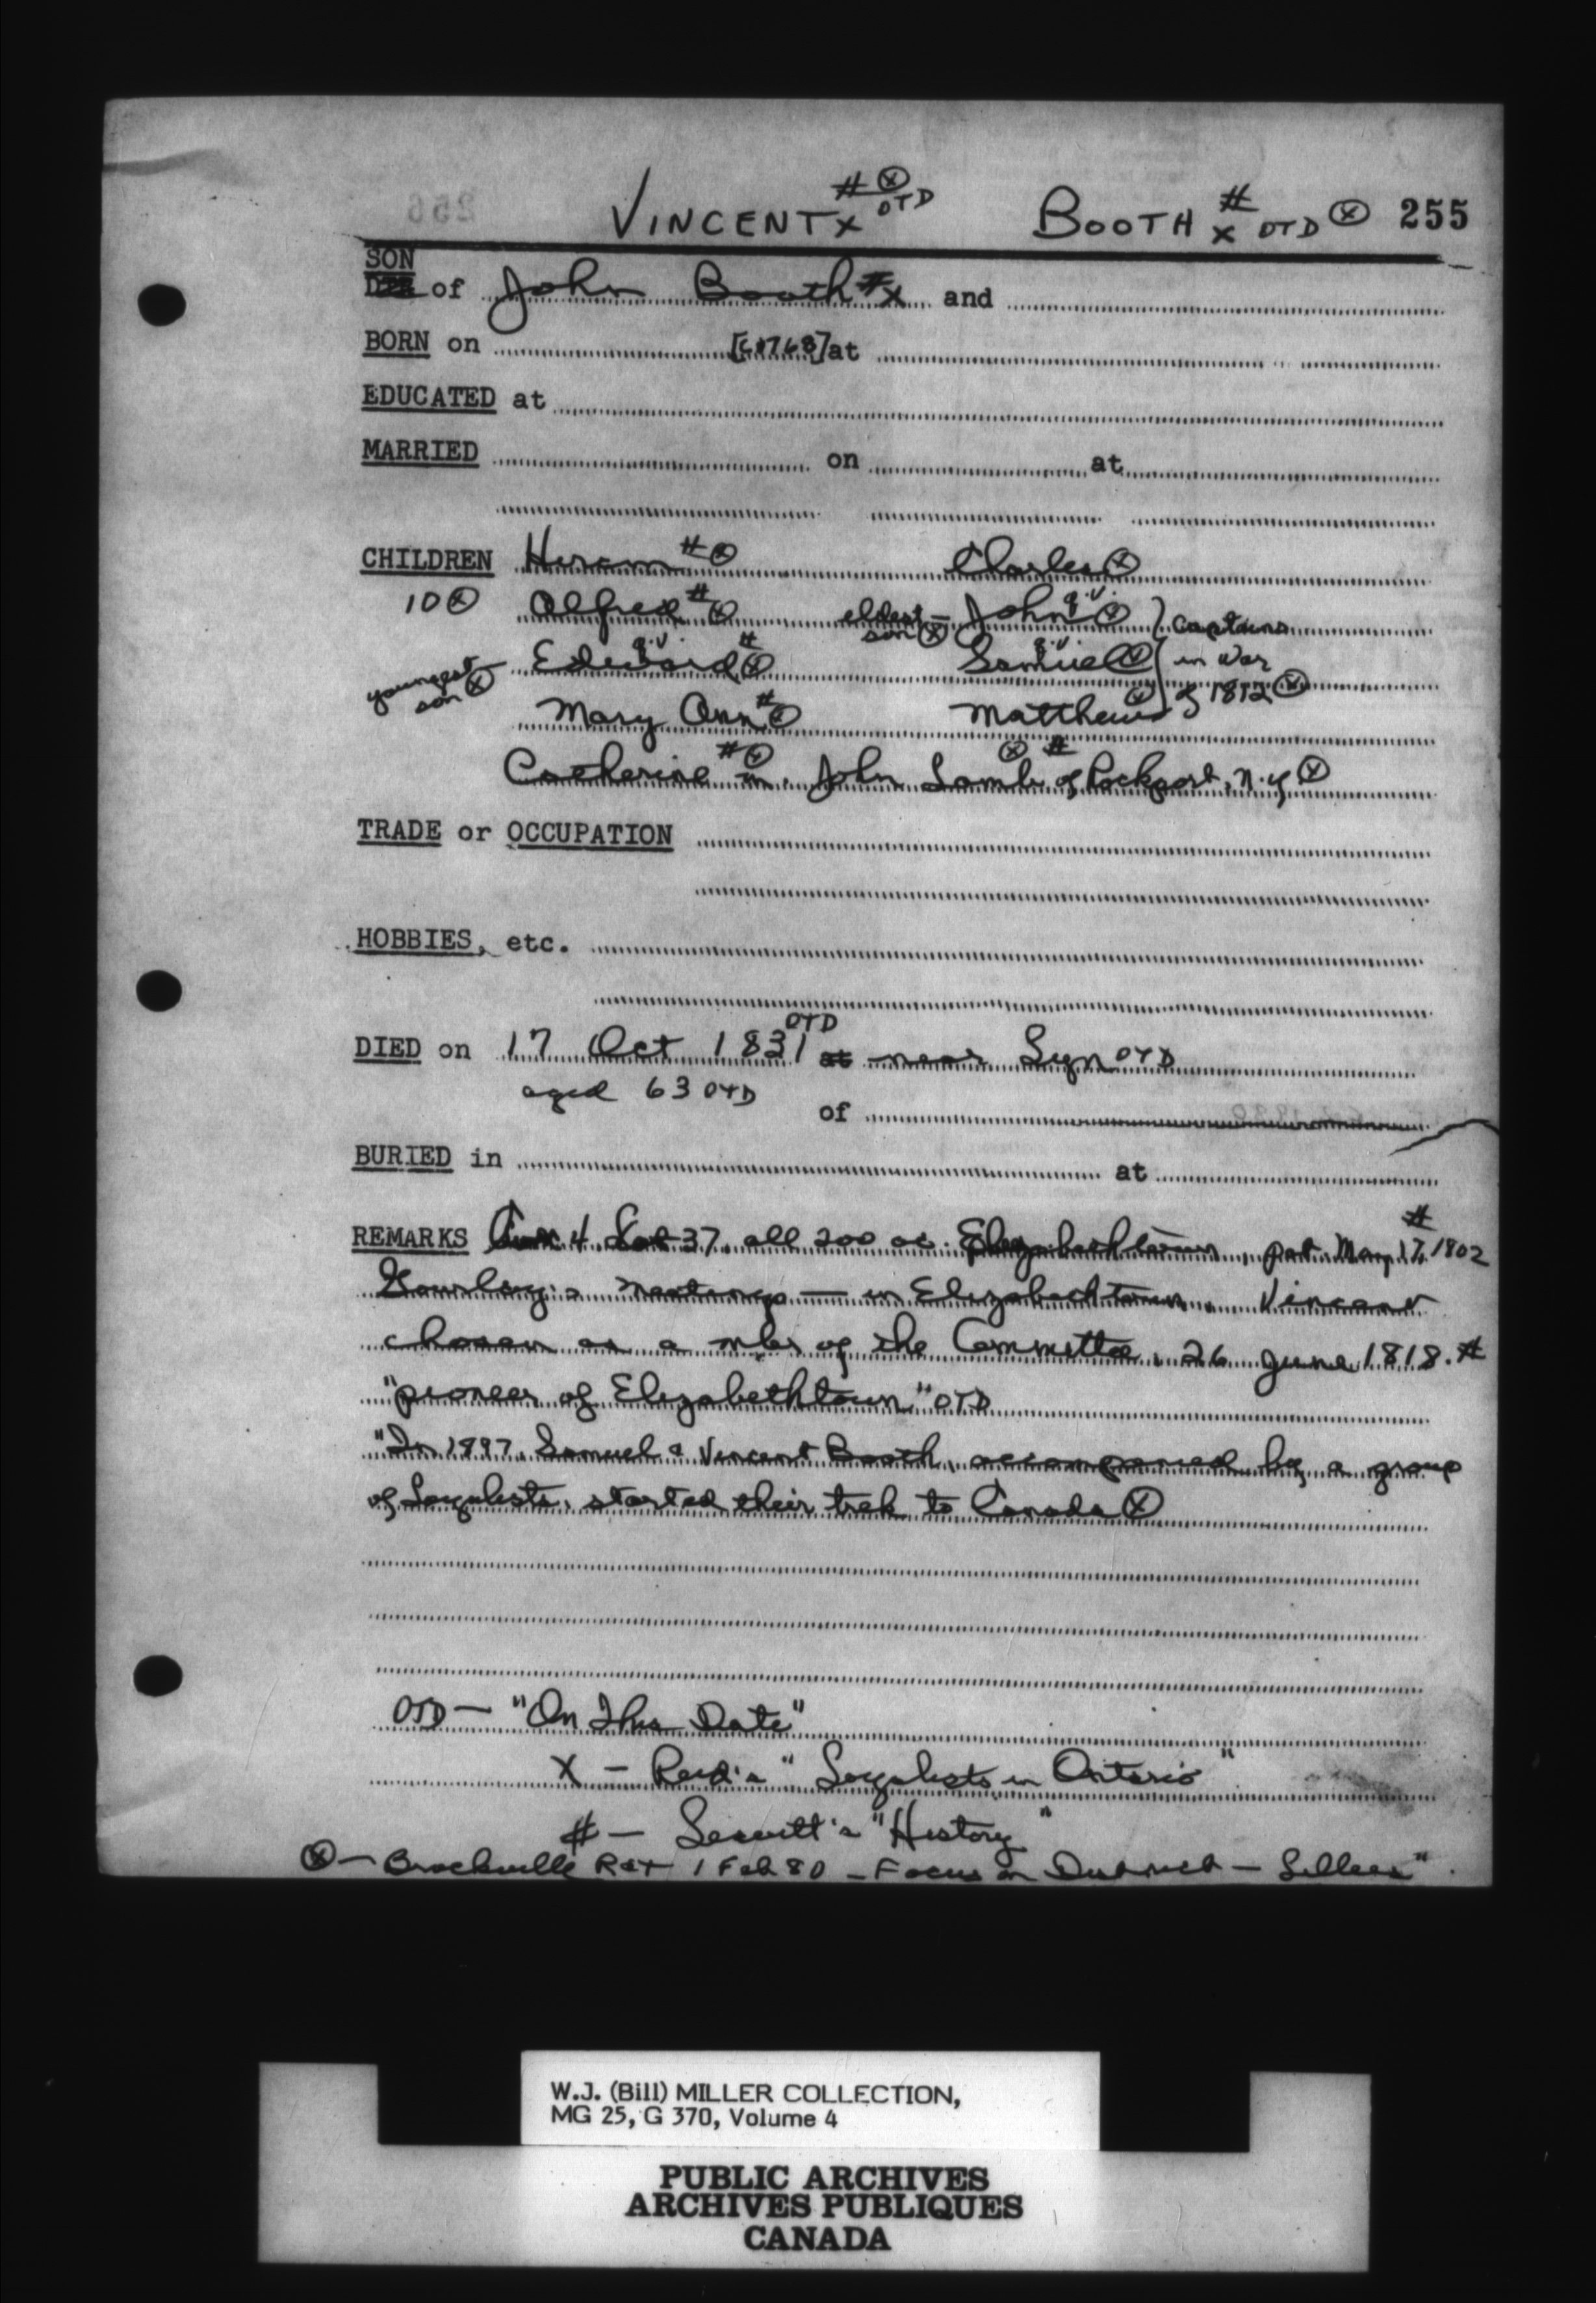 VINCENT # ⊗ x OTD BOOTH # x OTD ⊗ 255
SON
Dau of John Booth # x and
BORN on [c 1768] at
EDUCATED at
MARRIED on at
CHILDREN Hiram # ⊗ Charles ⊗
10 ⊗ Alfred # ⊗ eldest son ⊗ – John q.v. ⊗ } captains
youngest son ⊗ – Edward q.v. # ⊗ Samuel q.v. ⊗ in War
Mary Ann # ⊗ Matthew ⊗ of 1812 ⊗
Catherine # ⊗ m. John Lamb ⊗ # of Lockport, N.Y ⊗
TRADE or OCCUPATION
HOBBIES, etc.
DIED on 17 Oct 1831 OTD at near Lyn OTD
aged 63 OTD
of
BURIED in at
REMARKS Con 4 Lot 37, all 200 ac. Elizabethtown, pat. May 17, 1802 #
Gourlay's meetings — in Elizabethtown, Vincent
chosen as a mber of the Committee, 26 June 1818. #
"pioneer of Elizabethtown," OTD
"In 1797, Samuel & Vincent Booth, accompanied by a group
of Loyalists, started their trek to Canada ⊗
OTD — "On This Date"
X — Reid's "Loyalists in Ontario"
# — Leavitt's "History"
⊗ — Brockville R&T 1 Feb 80 – Focus on District –
W.J. (Bill) MILLER COLLECTION,
MG 25, G 370, Volume 4
PUBLIC ARCHIVES
ARCHIVES PUBLIQUES
CANADA